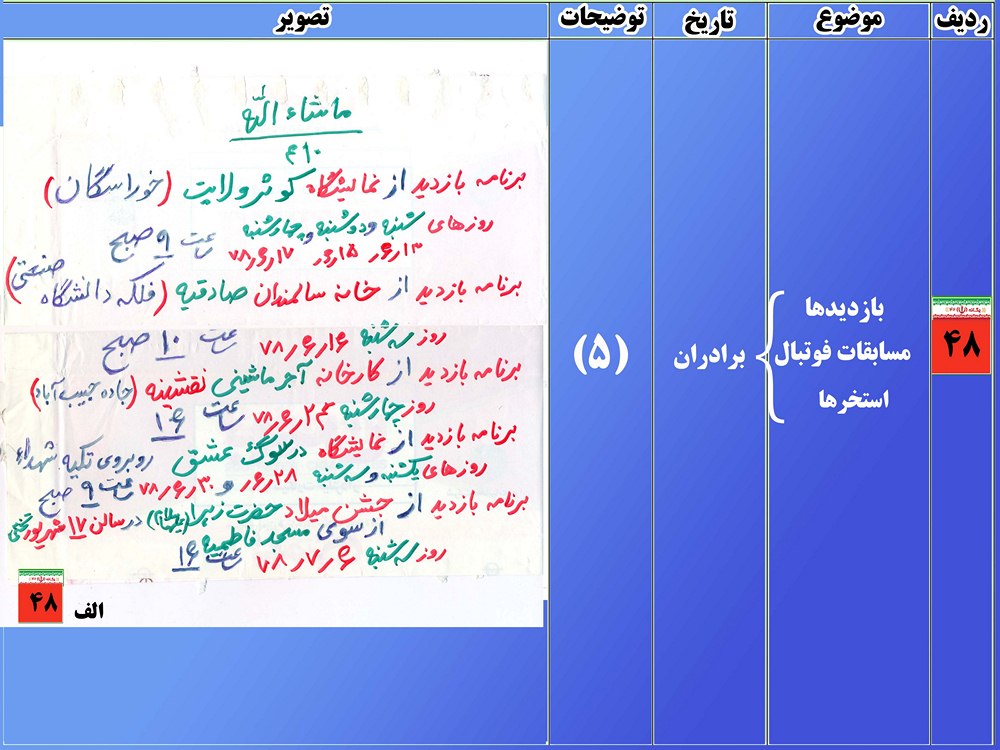 ردیف
موضوع
تاریخ
توضیحات
تصویر
۴۸
بازدیدها
مسابقات فوتبال
استخرها
برادران
(۵)
ماشاء الله
برنامه بازدید از نمایشگاه کوثر ولایت (خوراسگان)
روزهای شنبه و دوشنبه و چهارشنبه ساعت ۹ صبح
۱۳ر۶ر ۱۵ر۶ر ۱۷ر۶ر۷۸
برنامه بازدید از خانه سالمندان صادقیه (فلکه دانشگاه صنعتی)
روز سه شنبه ۱۶ر۶ر۷۸ ساعت ۱۰ صبح
برنامه بازدید از کارخانه آجر ماشینی نقشینه (جاده حبیب آباد)
روز چهارشنبه ۲۴ر۶ر۷۸ ساعت ۱۶
برنامه بازدید از نمایشگاه در سوگ عشق روبروی تکیه شهداء
روزهای یکشنبه و سه شنبه ۲۸ر۶ر و ۳۰ر۶ر۷۸ ساعت ۹ صبح
برنامه بازدید از جشن میلاد حضرت زهرا در سالن ۱۷ شهریور تختی
از سوی مسجد فاطمیه
روز سه شنبه ۶ر۷ر۷۸ ساعت ۱۶
۴۸
الف